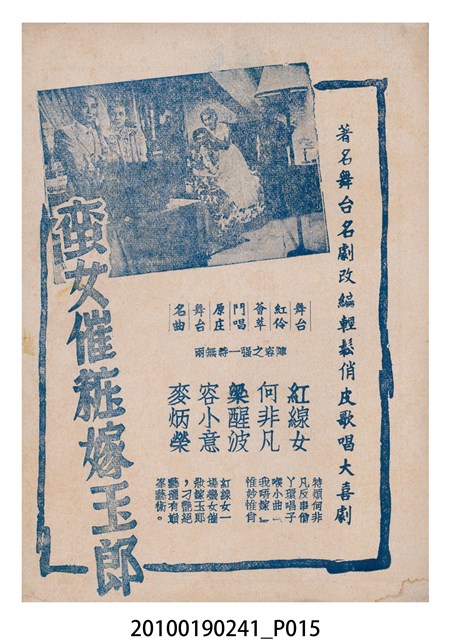 著名舞台名劇改編輕鬆俏皮歌唱大喜劇
舞台
紅伶
薈萃
鬥唱
原庄
舞台
名曲
陣容之強一時無兩
紅線女
何非凡
梁醒波
容小意
麥炳榮
特煩何非
凡反串俏
丫環唱子
喉小曲「
我唔嫁」
惟妙惟肖
紅線女一
場蠻女催
粧嫁玉郎
，刁艷絕
藝，獨有
藝術。
蠻女催粧嫁玉郎
20100190241_P015